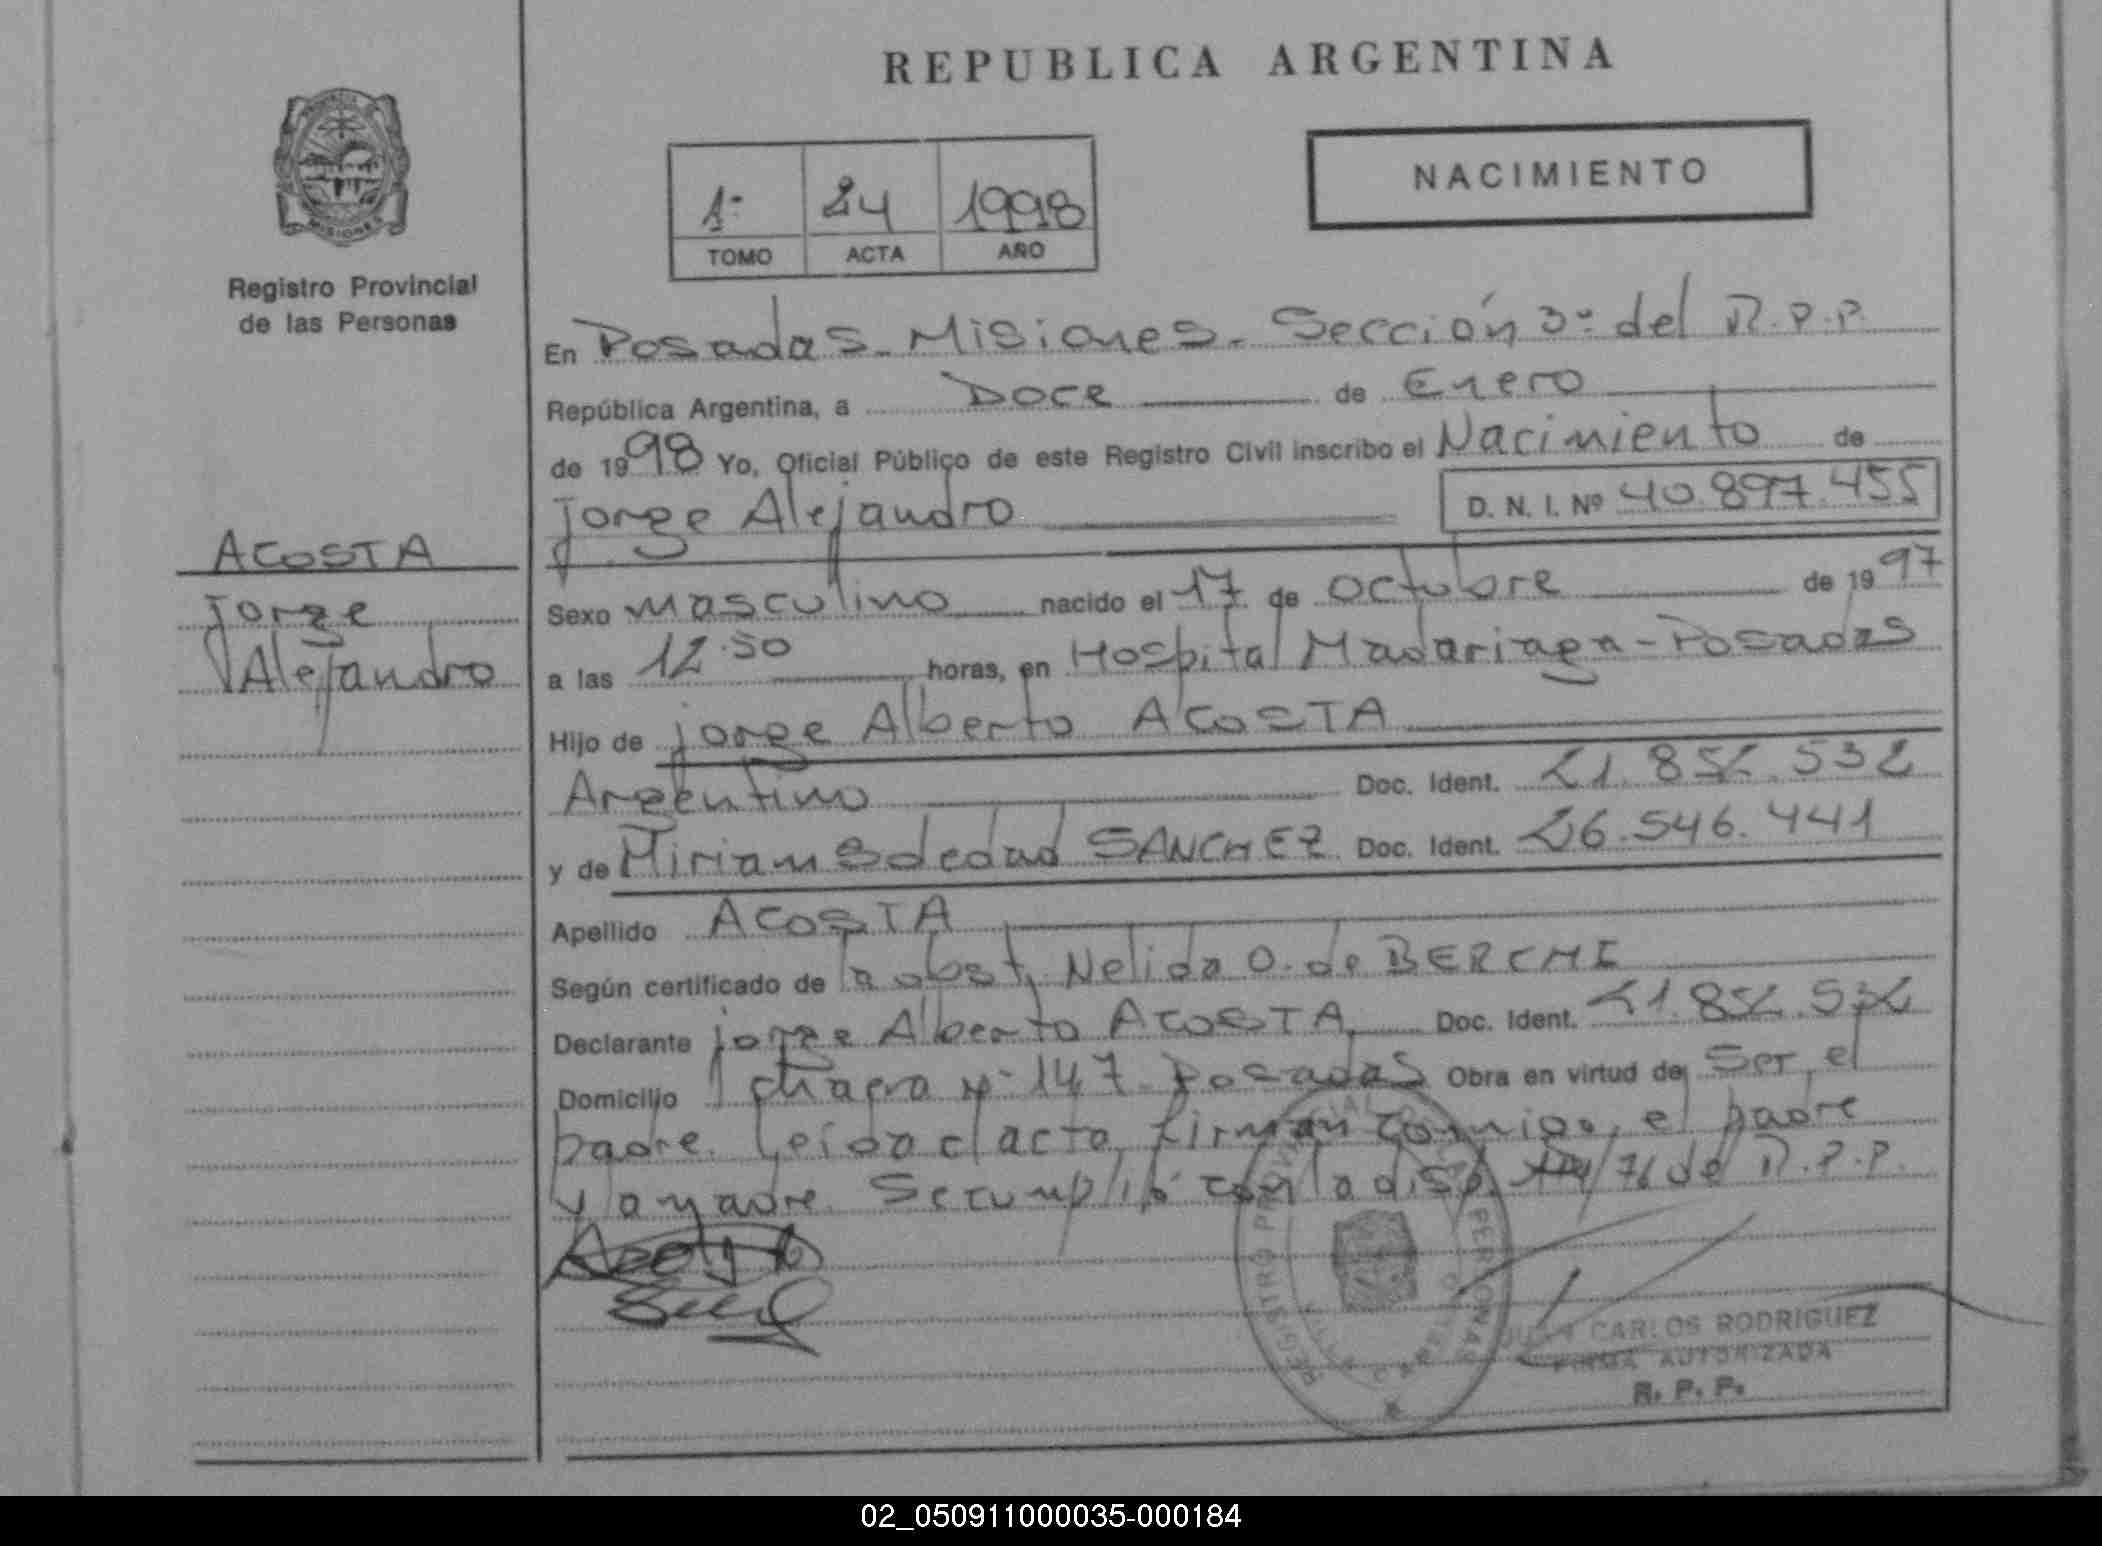 REPUBLICA ARGENTINA
NACIMIENTO
1º 24 1998
TOMO ACTA AÑO
MISIONES
Registro Provincial
de las Personas
En Posadas - Misiones - Sección 3º del R.P.P.
República Argentina, a Doce de Enero
de 1998 Yo, Oficial Público de este Registro Civil inscribo el Nacimiento de
Jorge Alejandro D. N. I. Nº 40.897.455
ACOSTA
Jorge
Alejandro
Sexo masculino nacido el 17 de octubre de 1997
a las 12.50 horas, en Hospital Madariaga - Posadas
Hijo de Jorge Alberto ACOSTA
Argentino Doc. Ident. 21.852.532
y de Miriam Soledad SANCHEZ Doc. Ident. 26.546.441
Apellido ACOSTA
Según certificado de la obst. Nelida O. de BERCHI
Declarante Jorge Alberto ACOSTA Doc. Ident. 21.852.532
Domicilio chacra Nº 147 Posadas Obra en virtud de Ser el
padre. Leida el acta, firman conmigo, el padre
y la madre. Se cumplió con la disp. /76 del R.P.P.
REGISTRO PROVINCIAL DE LAS PERSONAS
JUAN CARLOS RODRIGUEZ
FIRMA AUTORIZADA
R. P. P.
02_050911000035-000184